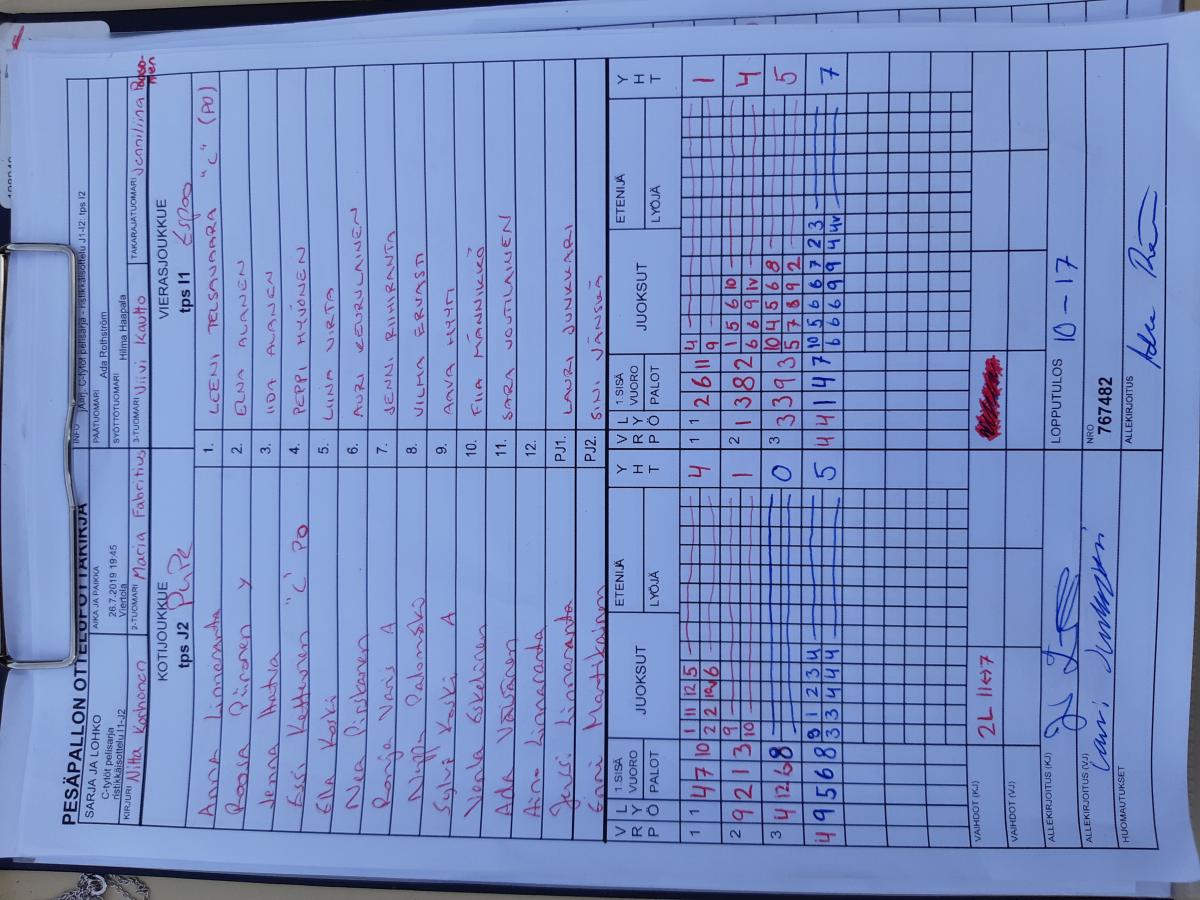 PESÄPALLON OTTELUPÖYTÄKIRJA
SARJA JA LOHKO
C-tytöt pelisarja
ristikkäisottelu I1-J2
AIKA JA PAIKKA
26.7.2019 19:45
Viertola
INFO Jäärj. C-tytöt pelisarja - ristikkäisottelu J1-I2: tps I2
PÄÄTUOMARI Ada Rothström
SYÖTTÖTUOMARI Hilma Haapala
KIRJURI Nitta Korhonen
2-TUOMARI Maria Fabritius
3-TUOMARI Viivi Kautto
TAKARAJATUOMARI Jenniliina
KOTIJOUKKUE
tps J2 PuPe
VIERASJOUKKUE
tps I1 Espoo
Anna Linnaranta 1. LEENI TELSAVAARA "C" (PO)
Roosa Piironen Y 2. ELNA ALANEN
Jenna Hutla 3. IIDA ALANEN
Essi Kettunen "C" PO 4. PEPPI HYVÖNEN
Ella Koski 5. LIINA VIRTA
Nea Pirskanen 6. AURI KEURULAINEN
Ronja Varis A 7. JENNI RIIHIRANTA
Nappu Palomäki 8. VILMA ERVASTI
Sylvi Koski A 9. AAVA HYYTI
Veera Eskelinen 10. FIIA MÄNNIKKÖ
Ada Väisänen 11. SARA VOUTILAINEN
Aino Linnaranta 12.
Jussi Linnaranta PJ1. LAURI JUNKKARI
Enni Martikainen PJ2. SINI JÄNSKÄ
VRP LYÖ 1.SISÄVUORO PALOT JUOKSUT ETENIJÄ LYÖJÄ YHT VRP LYÖ 1.SISÄVUORO PALOT JUOKSUT ETENIJÄ LYÖJÄ YHT
1 1 4 7 10 1 11 12 5 4 1 1 2 6 11 4 1
2 2 10v 6 9
2 9 2 1 3 9 1 2 1 3 8 2 1 5 6 10 4
10 6 6 9 1v
3 4 12 6 8 0 3 3 3 9 3 10 4 5 6 8 5
5 7 8 9 2
4 9 5 6 8 9 1 2 3 4 5 4 4 1 4 7 10 5 6 6 7 2 3 7
3 3 4 4 4 6 6 6 9 9 4 4v
VAIHDOT (KJ) 2L 11↔7
VAIHDOT (VJ)
ALLEKIRJOITUS (KJ)
LOPPUTULOS 10-17
ALLEKIRJOITUS (VJ) Lauri Junkkari
NRO
767482
HUOMAUTUKSET
ALLEKIRJOITUS